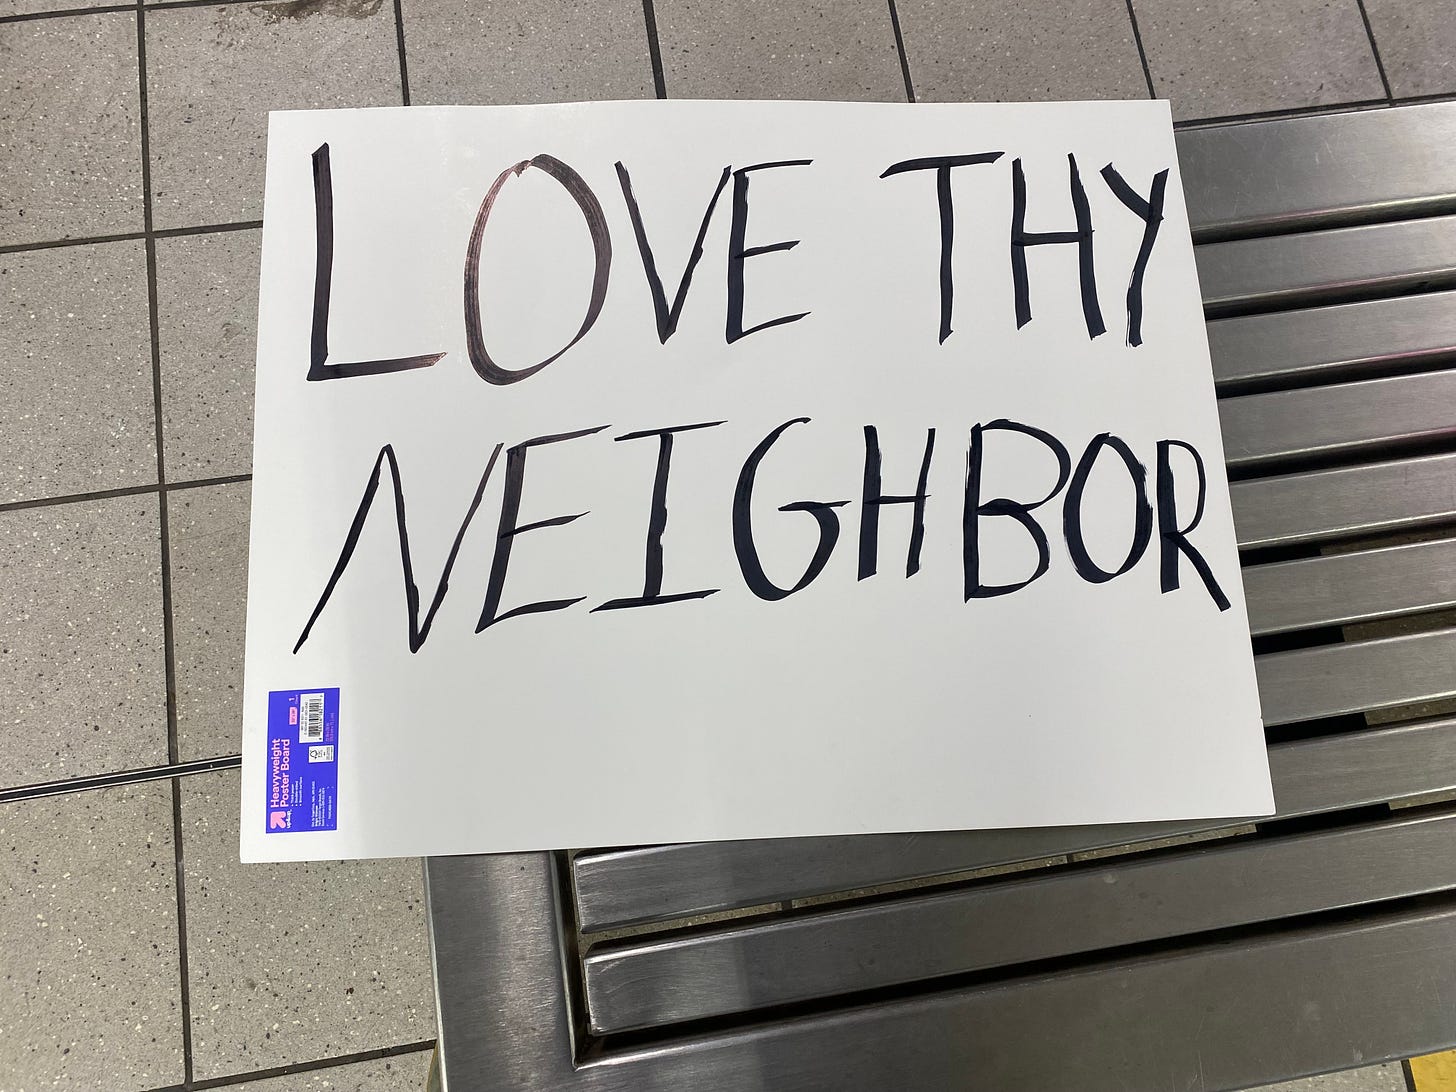 LOVE THY
NEIGHBOR
Heavyweight
Poster Board
up&up